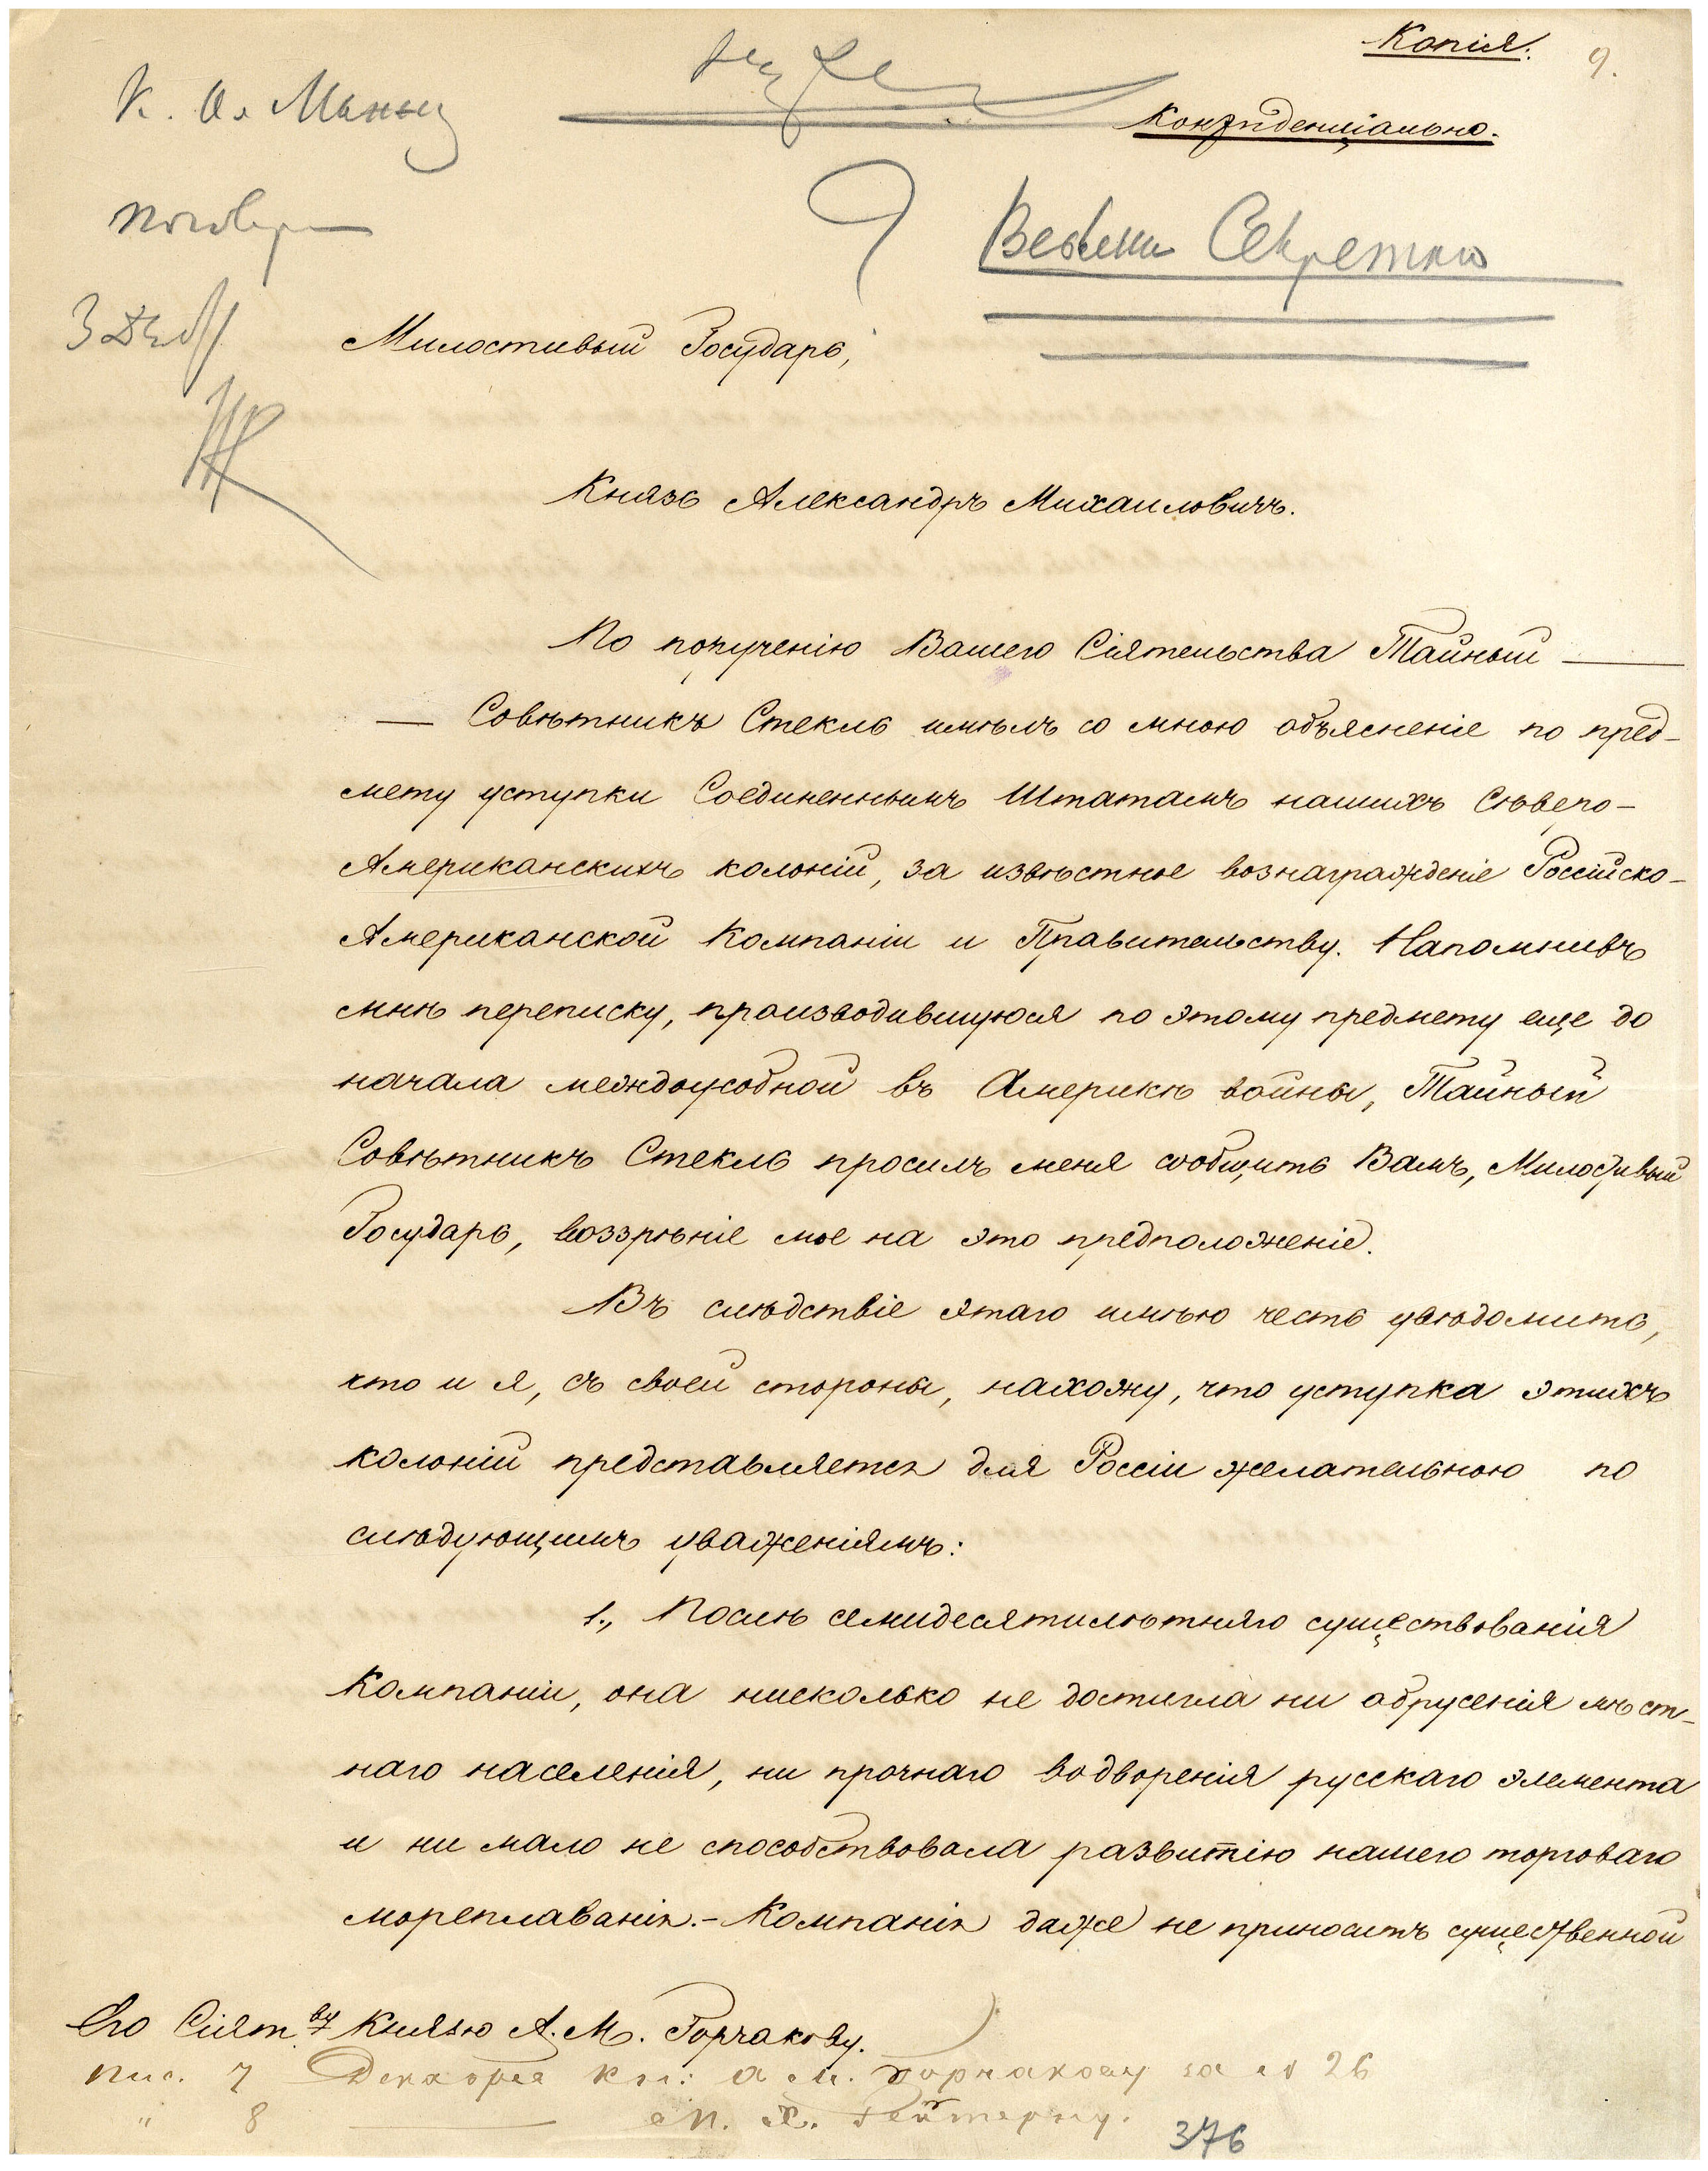 Копія.
9.
Конфиденціально.
К. Ал. Манну
Весьма Секретно
Милостивый Государь,
Князь Александръ Михаиловичъ.
По порученію Вашего Сіятельства Тайный
Совѣтникъ Стекль имѣлъ со мною объясненіе по пред-
мету уступки Соединеннымъ Штатамъ нашихъ Сѣверо-
Американскихъ колоній, за извѣстное вознагражденіе Россійско-
Американской Компаніи и Правительству. Напомнивъ
мнѣ переписку, производившуюся по этому предмету еще до
начала междоусобной въ Америкѣ войны, Тайный
Совѣтникъ Стекль просилъ меня сообщить Вамъ, Милостивый
Государь, воззрѣніе мое на это предположеніе.
Въ слѣдствіе этаго имѣю честь увѣдомить,
что и я, съ своей стороны, нахожу, что уступка этихъ
колоній представляется для Россіи желательною по
слѣдующимъ уваженіямъ:
1., Послѣ семидесятилѣтняго существованія
Компаніи, она нисколько не достигла ни обрусенія мѣст-
наго населенія, ни прочнаго водворенія русскаго элемента
и ни мало не способствовала развитію нашего торговаго
мореплаванія.- Компанія даже не приноситъ существенной
Его Сіят. ву Князю А. М. Горчакову.
пис. 7 Декабря кн: А. М. Горчакову за № 26
" 8 — М. Х. Рейтерну.
376